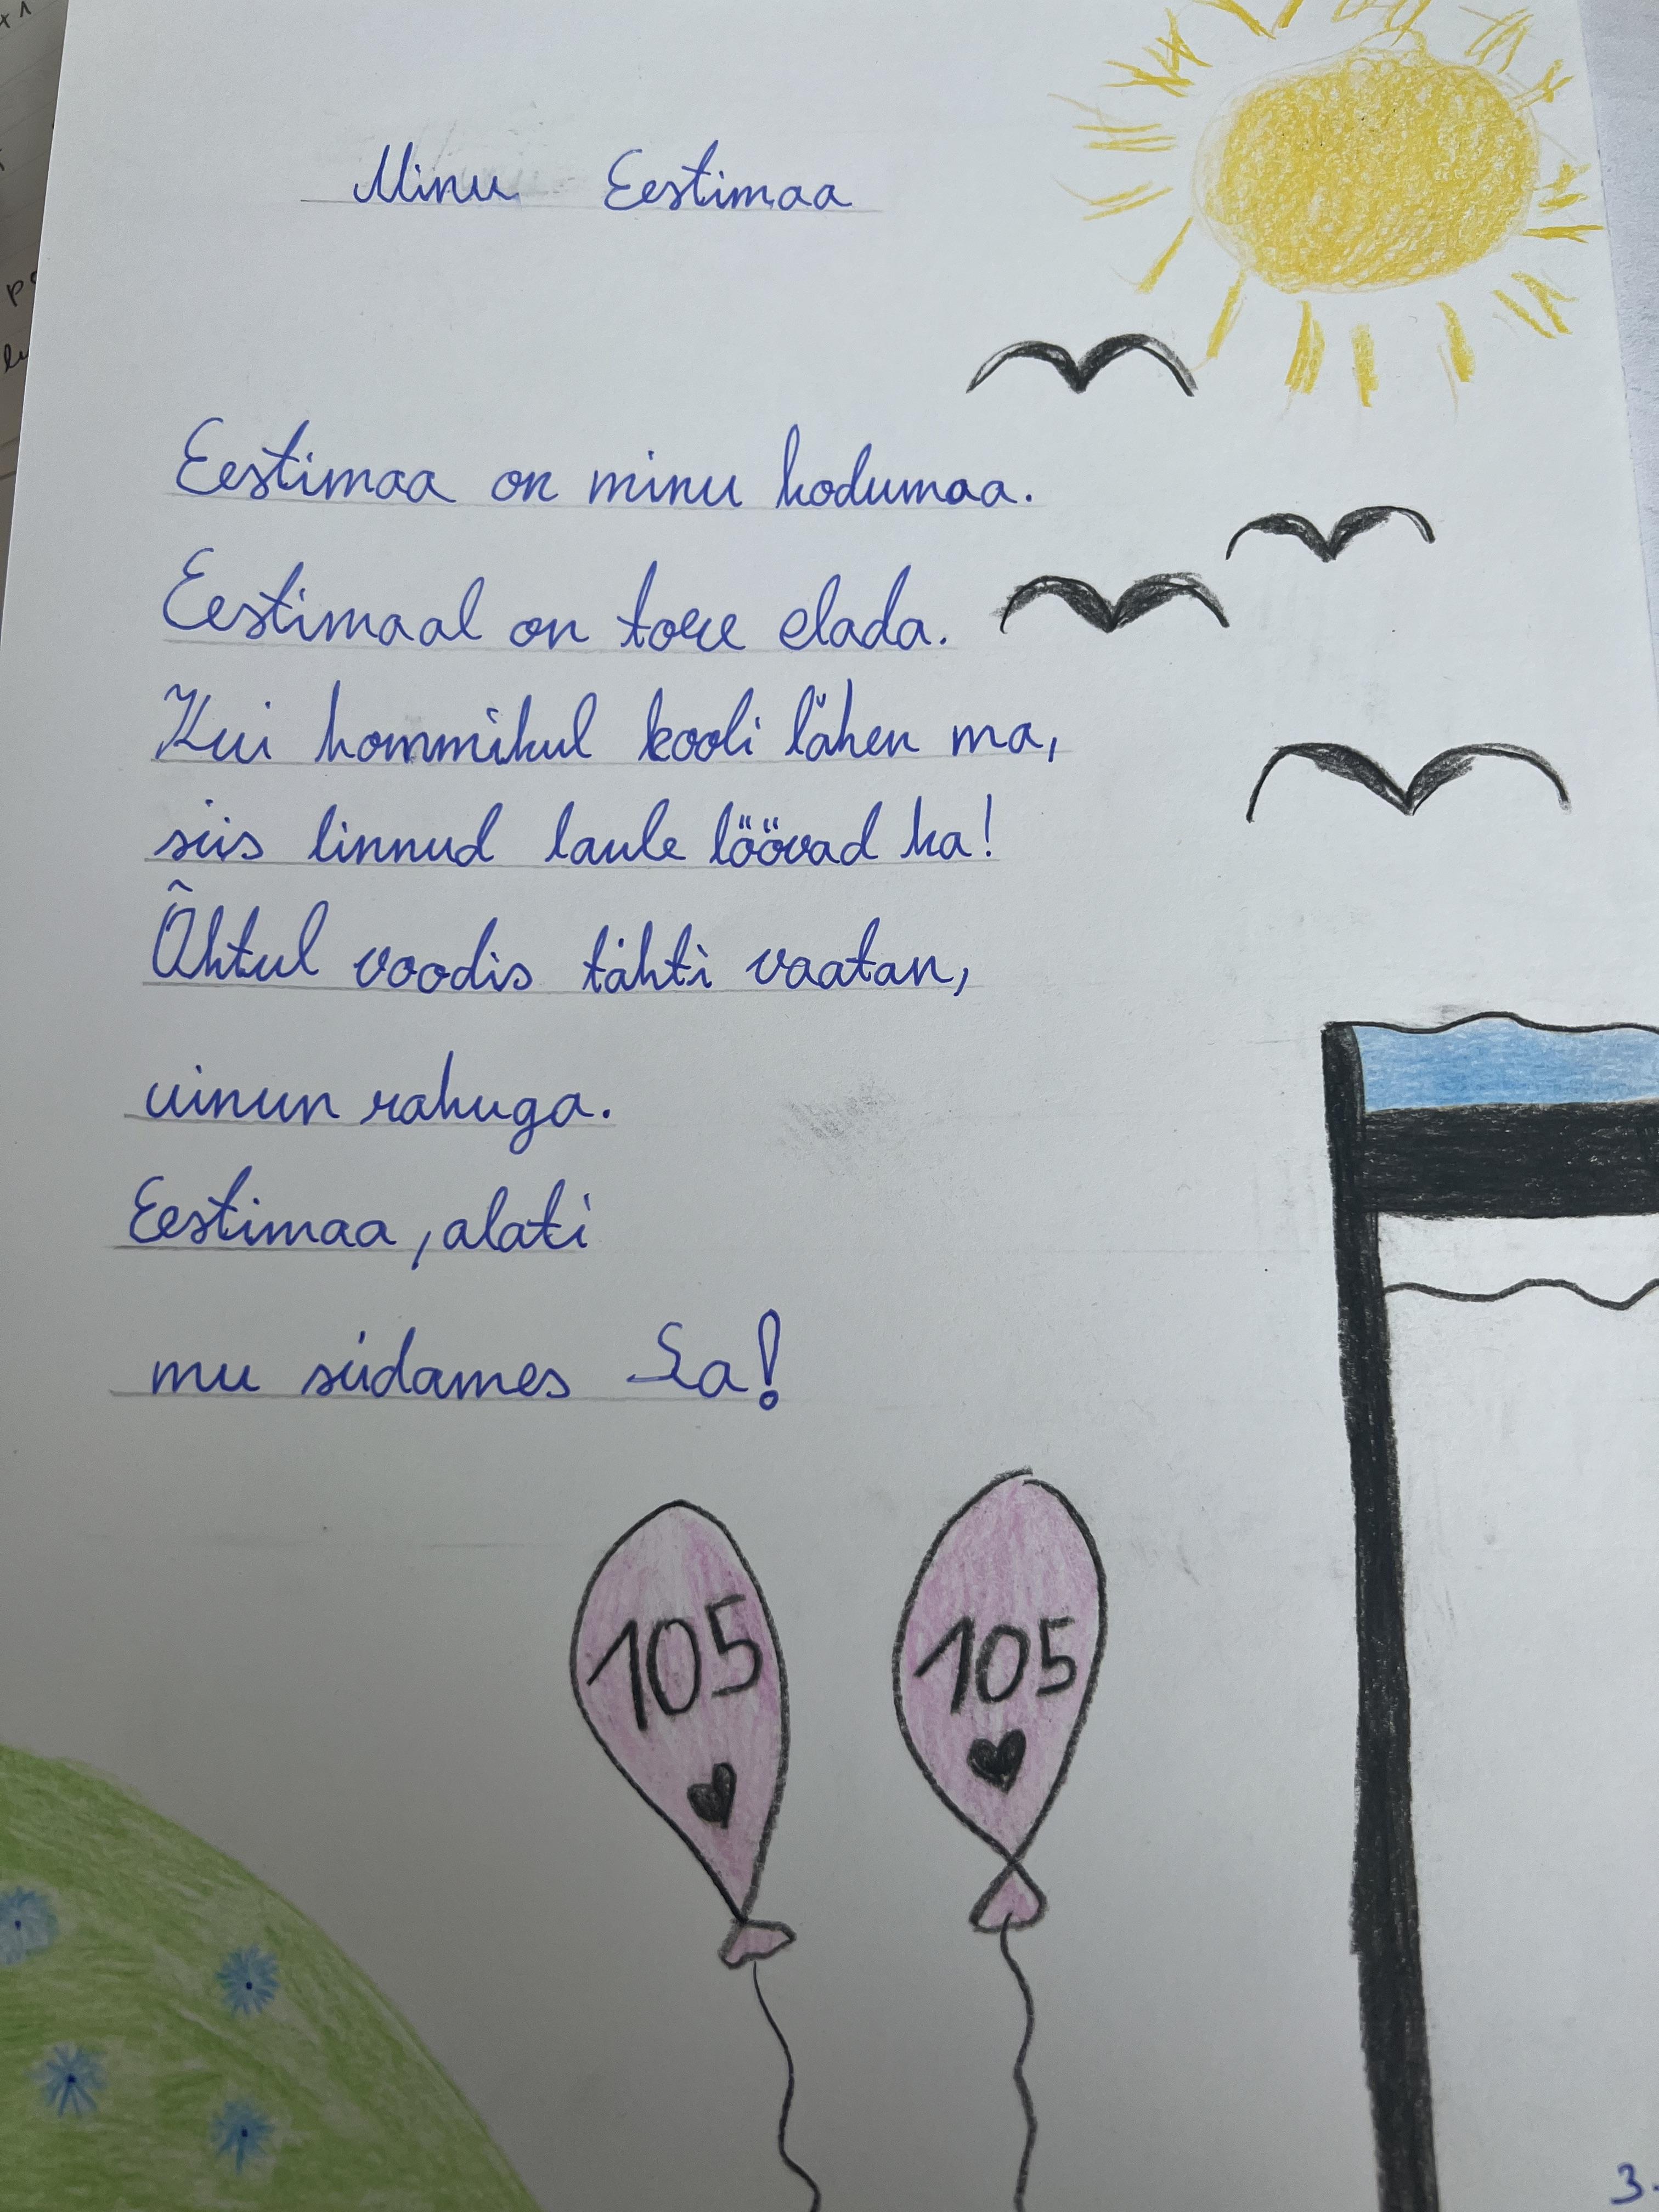 Minu Eestimaa
Eestimaa on minu kodumaa.
Eestimaal on tore elada.
Kui hommikul kooli lähen ma,
siis linnud laule löövad ka!
Õhtul voodis tähti vaatan,
uinun rahuga.
Eestimaa, alati
mu südames Sa!
105
105
3.